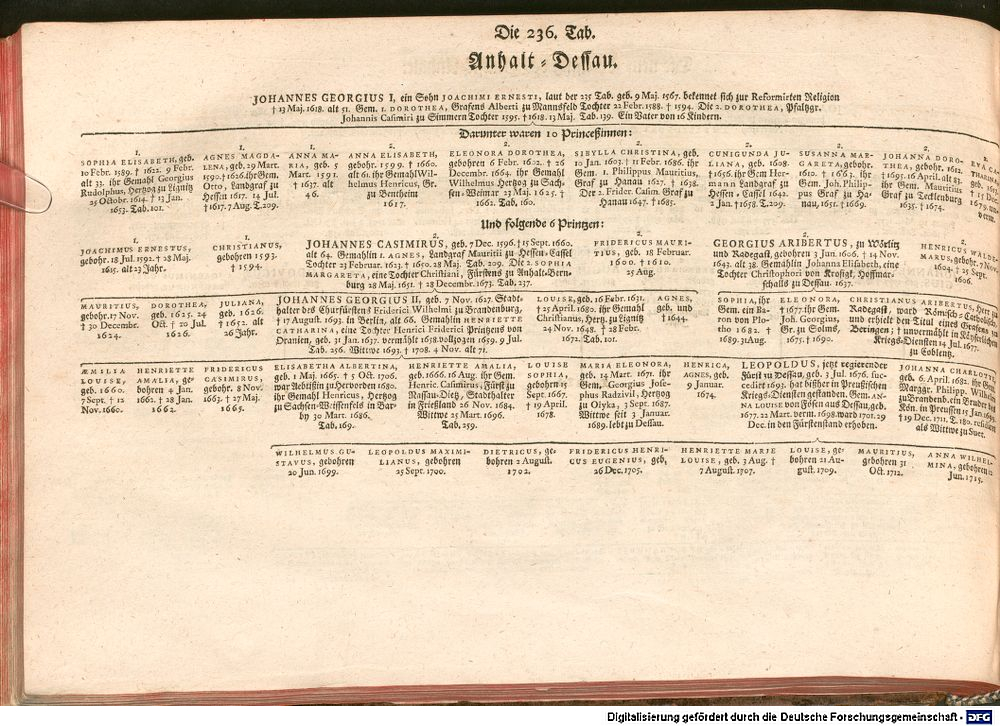 Die 236. Tab.
Anhalt-Dessau.
JOHANNES GEORGIUS I, ein Sohn JOACHIMI ERNESTI, laut der 235 Tab. geb. 9 Maj. 1567. bekennet sich zur Reformirten Religion
† 13 Maj. 1618. alt 51. Gem. 1. DOROTHEA, Grafens Alberti zu Mannsfeld Tochter 22 Febr. 1588. † 1594. Die 2. DOROTHEA, Pfaltzgr.
Johannis Casimiri zu Simmern Tochter 1595. † 1618. 13 Maj. Tab. 139. Ein Vater von 16 Kindern.
Darunter waren 10 Princeßinnen:
1.
SOPHIA ELISABETH, geb.
10 Febr. 1589. † 1622. 9 Febr.
alt 33. ihr Gemahl Georgius
Rudolphus, Hertzog zu Lignitz
25 Octobr. 1614. † 13 Jan.
1653. Tab. 101.
1.
AGNES MAGDA-
LENA, geb. 29 Mart.
1590. † 1626. ihr Gem.
Otto, Landgraf zu
Hessen 1617. 14 Jul.
† 1617. 7 Aug. T. 209.
1.
ANNA MA-
RIA, geb. 5
Mart. 1591.
† 1637. alt
46.
2.
ANNA ELISABETH,
gebohr. 1599. † 1660.
alt 61. ihr Gemahl Wil-
helmus Henricus, Gr.
zu Bentheim
1617.
2.
ELEONORA DOROTHEA,
gebohren 6 Febr. 1602. † 26
Decembr. 1664. ihr Gemahl
Wilhelmus Hertzog zu Sach-
sen-Weimar 23 Maj. 1625. †
1662. Tab. 160.
2.
SIBYLLA CHRISTINA, geb.
10 Jan. 1603. † 11 Febr. 1686. ihr
Gem. 1. Philippus Mauritius,
Graf zu Hanau 1627. † 1638.
Der 2. Frider. Casim. Graf zu
Hanau 1647. † 1685.
2.
CUNIGUNDA JU-
LIANA, geb. 1608.
† 1656. ihr Gem Her-
mann Landgraf zu
Hessen-Cassel 1642.
2 Jan. † 1658. T. 209.
2.
SUSANNA MAR-
GARETA, gebohr.
1610. † 1663. ihr
Gem. Joh. Philip-
pus Graf zu Ha-
nau, 1651. † 1669.
2.
JOHANNA DORO-
THEA, gebohr. 1612.
† 1695. 16 April. alt 83.
ihr Gem. Mauritius
Graf zu Tecklenburg
1635. † 1674.
2.
EVA CA-
THARINA,
geb. 1613.
† 15 Dec.
1679. un-
verm.
Und folgende 6 Printzen:
1.
JOACHIMUS ERNESTUS,
gebohr. 18 Jul. 1592. † 28 Maj.
1615. alt 23 Jahr.
1.
CHRISTIANUS,
gebohren 1593.
† 1594.
2.
JOHANNES CASIMIRUS, geb. 7 Dec. 1596. † 15 Sept. 1660.
alt 64. Gemahlin 1. AGNES, Landgraf Mauritii zu Hessen-Cassel
Tochter 23 Februar. 1623. † 1650. 28 Maj. Tab. 209. Die 2. SOPHIA
MARGARETA, eine Tochter Christiani, Fürstens zu Anhalt-Bern-
burg 28 Maj. 1651. † 28 Decembr. 1673. Tab. 237.
2.
FRIDERICUS MAURI-
TIUS, geb. 18 Februar.
1600. † 1610.
25 Aug.
2.
GEORGIUS ARIBERTUS, zu Wörlitz
und Radegast, gebohren 3 Jan. 1606. † 14 Nov.
1643. alt 38. Gemahlin Johanna Elisabeth, eine
Tochter Christophori von Krosigk, Hoffmar-
schalls zu Dessau. 1637.
2.
HENRICUS WALDE-
MARUS, gebohr. 7 Nov.
1604. † 25 Sept.
1606.
MAURITIUS,
gebohr. 17 Nov.
† 30 Decembr.
1624.
DOROTHEA,
geb. 1625. 24
Oct. † 20 Jul.
1626.
JULIANA,
geb. 1626.
† 1652. alt
26 Jahr.
JOHANNES GEORGIUS II, geb. 7 Nov. 1627. Statt-
halter des Churfürstens Friderici Wilhelmi zu Brandenburg,
† 17 August. 1693. in Berlin, alt 66. Gemahlin HENRIETTE
CATHARINA, eine Tochter Henrici Friderici Printzens von
Oranien, geb. 31 Jan. 1637. vermählt 1658. vollzogen 1659. 9 Jul.
Tab. 256. Wittwe 1693. † 1708. 4 Nov. alt 71.
LOUISE, geb. 16 Febr. 1631.
† 25 April. 1680. ihr Gemahl
Christianus, Hertz. zu Lignitz
24 Nov. 1648. † 28 Febr.
1672. Tab. 101.
AGNES,
geb. und
† 1644.
SOPHIA, ihr
Gem. ein Ba-
ron von Plo-
tho 1682. †
1689. 31 Aug.
ELEONORA,
† 1677. ihr Gem.
Joh. Georgius,
Gr. zu Solms,
1675. † 1690.
CHRISTIANUS ARIBERTUS, Herr zu
Radegast, ward Römisch-Catholisch,
und erhielt den Titul eines Grafens von
Beringen; † unvermählt in Käyserlichen
Kriegs-Diensten 14 Jul. 1677.
zu Coblentz.
ÆMILIA
LOUISE,
geb. 1660.
7 Sept. † 12
Nov. 1660.
HENRIETTE
AMALIA, ge-
bohren 4 Jan.
1662. † 28 Jan.
1662.
FRIDERICUS
CASIMIRUS,
gebohr. 8 Nov.
1663. † 27 Maj.
1665.
ELISABETHA ALBERTINA,
geb. 1 Maj. 1665. † 5 Oct. 1706.
war Aebtißin zu Hervorden 1680.
ihr Gemahl Henricus, Hertzog
zu Sachsen-Weissenfels in Bar-
by 30 Mart. 1686.
Tab. 169.
HENRIETTE AMALIA,
geb. 1666. 16 Aug. ihr Gem.
Henric. Casimirus, Fürst zu
Nassau-Dietz, Statthalter
in Frießland 26 Nov. 1684.
Wittwe 25 Mart. 1696.
Tab. 259.
LOUISE
SOPHIA,
gebohren 15
Sept. 1667.
† 19 April.
1678.
MARIA ELEONORA,
geb. 14 Mart. 1671. ihr
Gem. Georgius Jose-
phus Radzivil, Hertzog
zu Olyka, 3 Sept. 1687.
Wittwe seit 3 Januar.
1689. lebt zu Dessau.
HENRICA,
AGNES, geb.
9 Januar.
1674.
LEOPOLDUS, jetzt regierender
Fürst zu Dessau, geb. 3 Jul. 1676. suc-
cedirt 1693. hat bißher in Preußischen
Kriegs-Diensten gestanden. Gem. AN-
NA LOUISE von Fösen aus Dessau, geb.
1677. 22 Mart. verm. 1698. ward 1701. 29
Dec. in den Fürstenstand erhoben.
JOHANNA CHARLOTTE
geb. 6. April. 1682. ihr Gem.
Marggr. Philipp. Wilhelm
zu Brandenb. ein Bruder des
Kön. in Preussen 15 Jan. 1699.
† 19 Dec. 1711. T. 180. residirt
als Wittwe zu
WILHELMUS GU-
STAVUS, gebohren
20 Jun. 1699.
LEOPOLDUS MAXIMI-
LIANUS, gebohren
25 Sept. 1700.
DIETRICUS, ge-
bohren 2 August.
1702.
FRIDERICUS HENRI-
CUS EUGENIUS, geb.
26 Dec. 1705.
HENRIETTE MARIE
LOUISE, geb. 3 Aug. †
7 August. 1707.
LOUISE, ge-
bohren 21 Au-
gust. 1709.
MAURITIUS,
gebohren 31
Oct. 1712.
ANNA WILHEL-
MINA, gebohren 12
Jun. 1715.
Digitalisierung gefördert durch die Deutsche Forschungsgemeinschaft - DFG